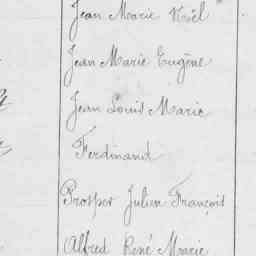 Jean Marie Noël
Jean Marie Eugène
Jean Louis Marie
Ferdinand
Prosper Julien François
Alfred René Marie